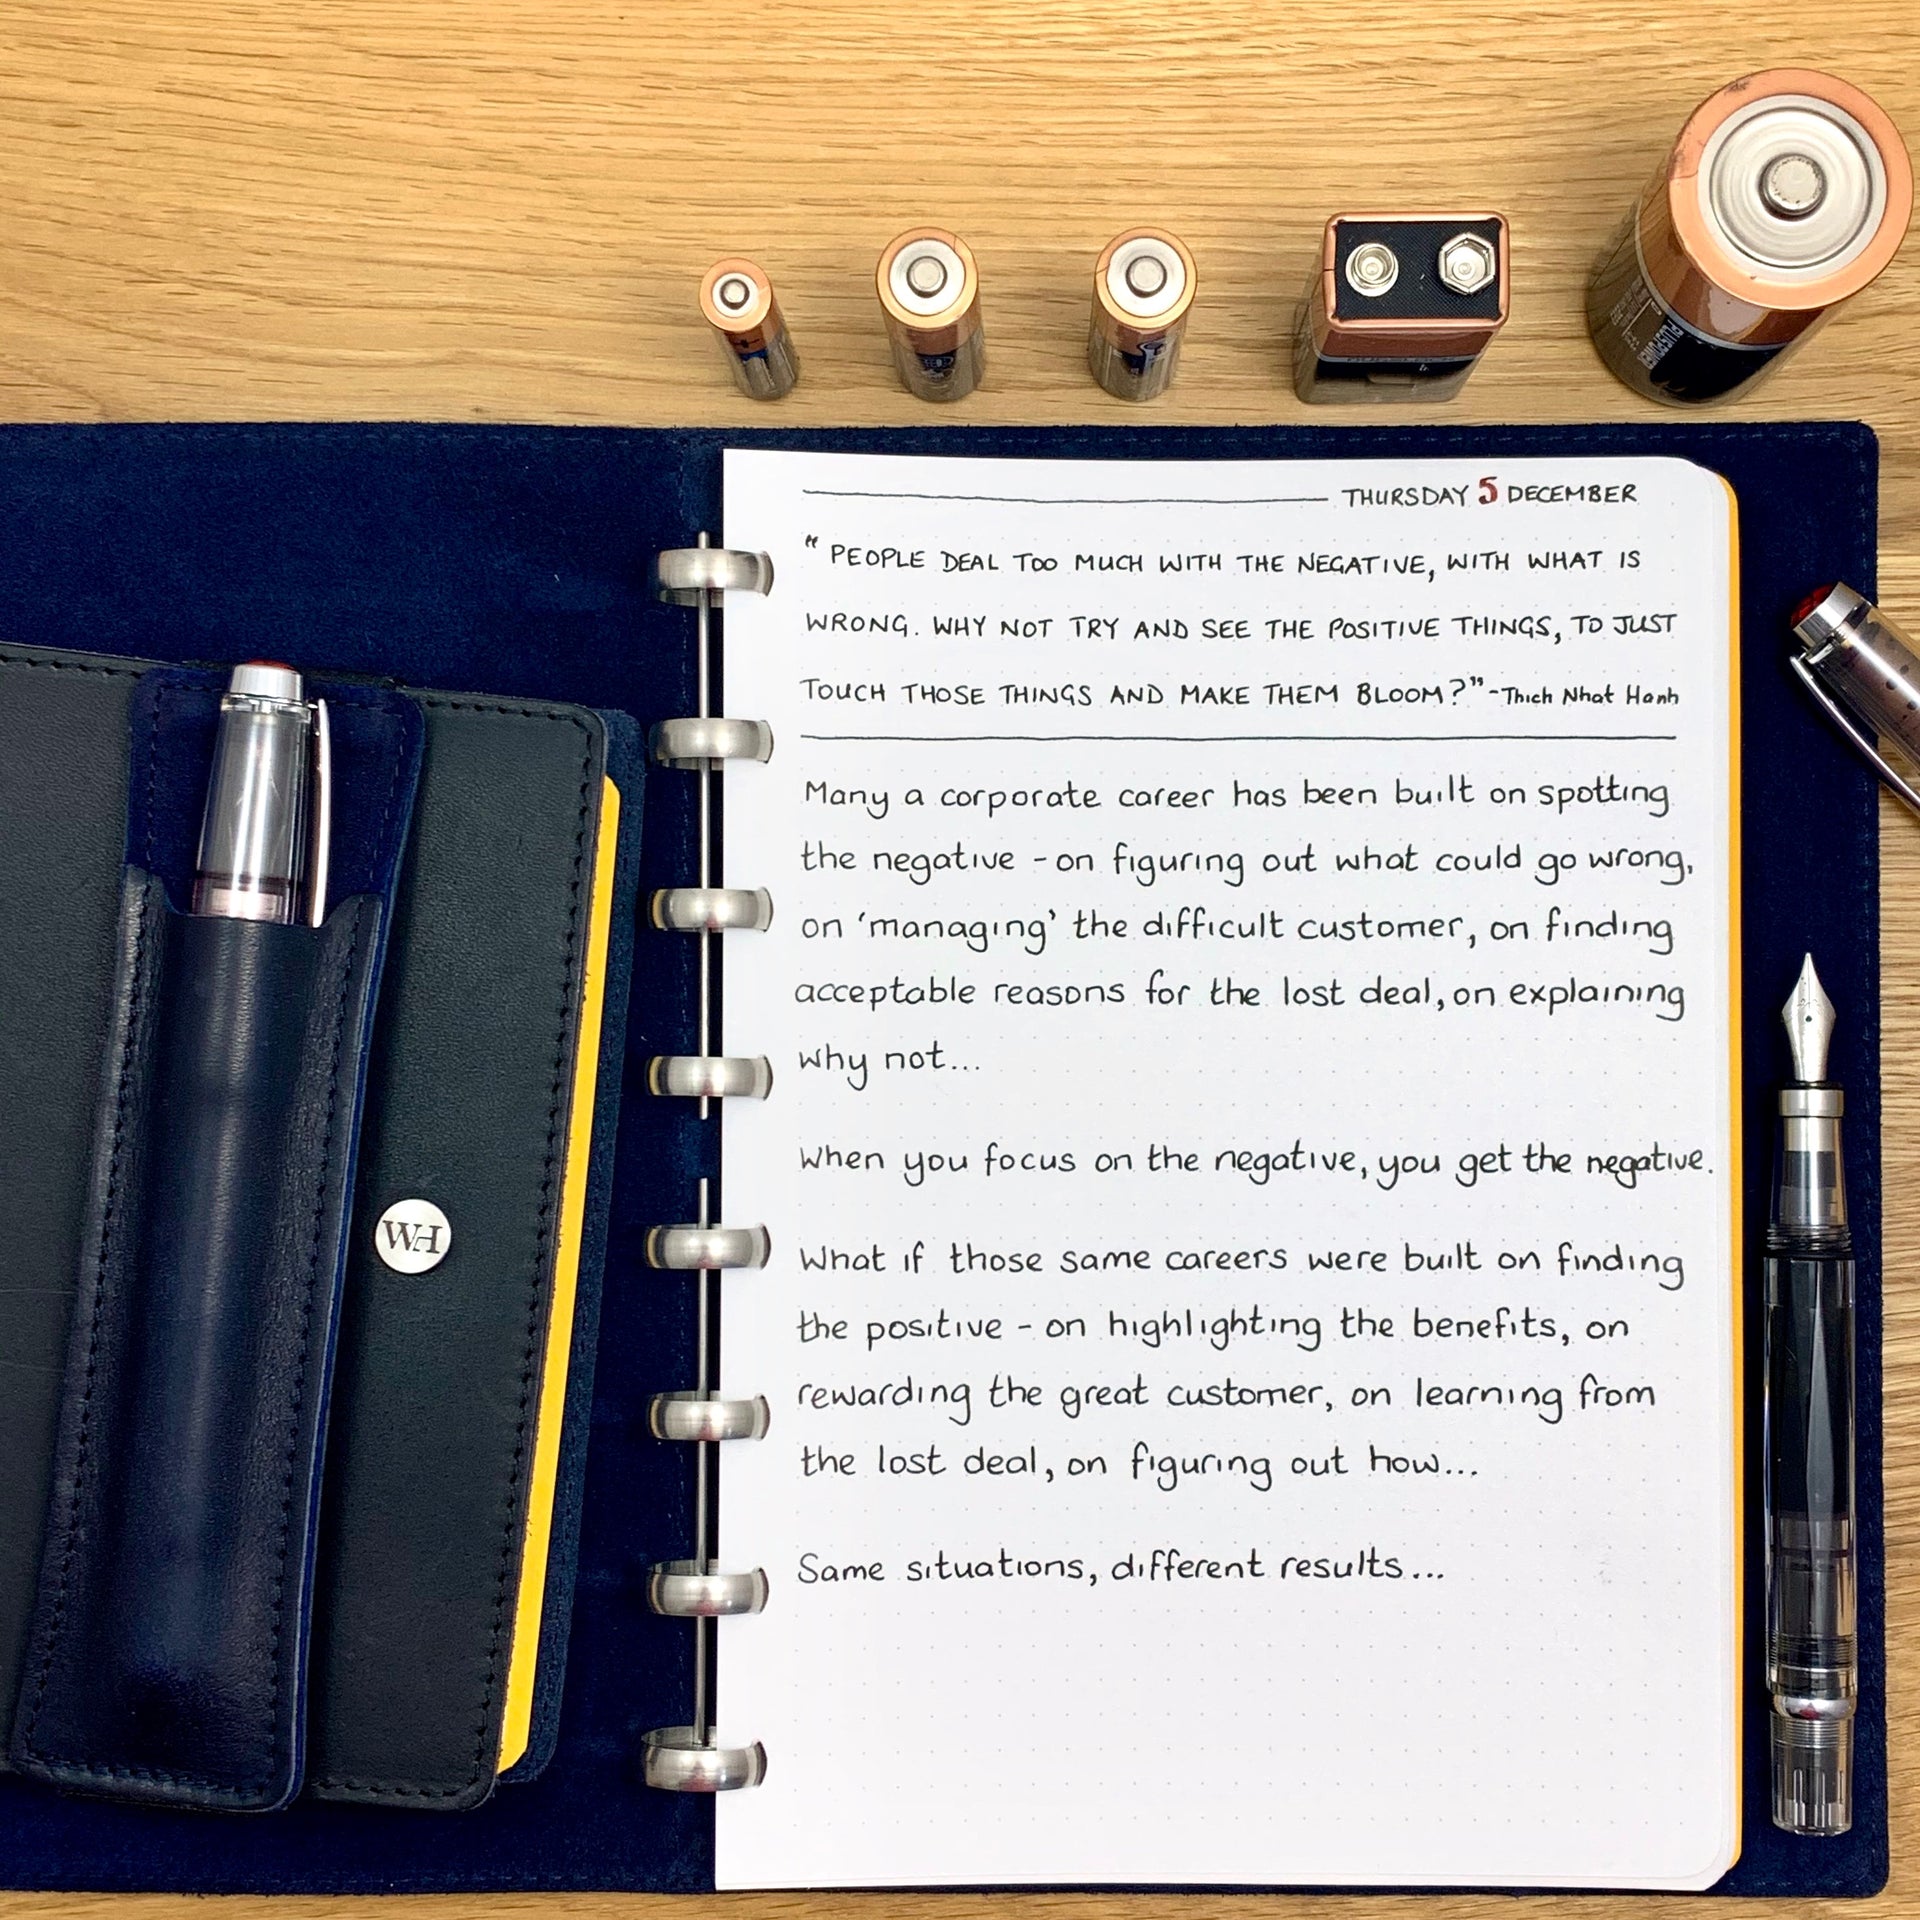 THURSDAY 5 DECEMBER
“PEOPLE DEAL TOO MUCH WITH THE NEGATIVE, WITH WHAT IS
WRONG. WHY NOT TRY AND SEE THE POSITIVE THINGS, TO JUST
TOUCH THOSE THINGS AND MAKE THEM BLOOM?” - Thich Nhat Hanh
Many a corporate career has been built on spotting
the negative - on figuring out what could go wrong,
on ‘managing’ the difficult customer, on finding
acceptable reasons for the lost deal, on explaining
why not...
When you focus on the negative, you get the negative.
What if those same careers were built on finding
the positive - on highlighting the benefits, on
rewarding the great customer, on learning from
the lost deal, on figuring out how...
Same situations, different results...
WH
PLUS POWER